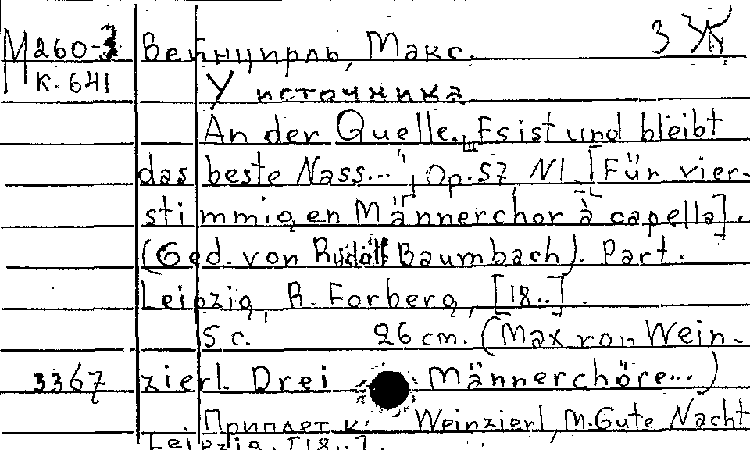 М260-3 Вейнцирль, Макс. 3 ЗК
К. 641 У источника
An der Quelle. „Es ist und bleibt
das beste Nass..." Op. 57 N1. [Für vier-
stimmigen Männerchor à capella].
(Ged. von Rudolf Baumbach). Part.
Leipzig, R. Forberg, [18..].
5 c. 26 cm. (Max von Wein-
3367 zierl. Drei Männerchöre...)
Приплет к: Weinzierl, M. Gute Nacht
Leipzig. [18..].